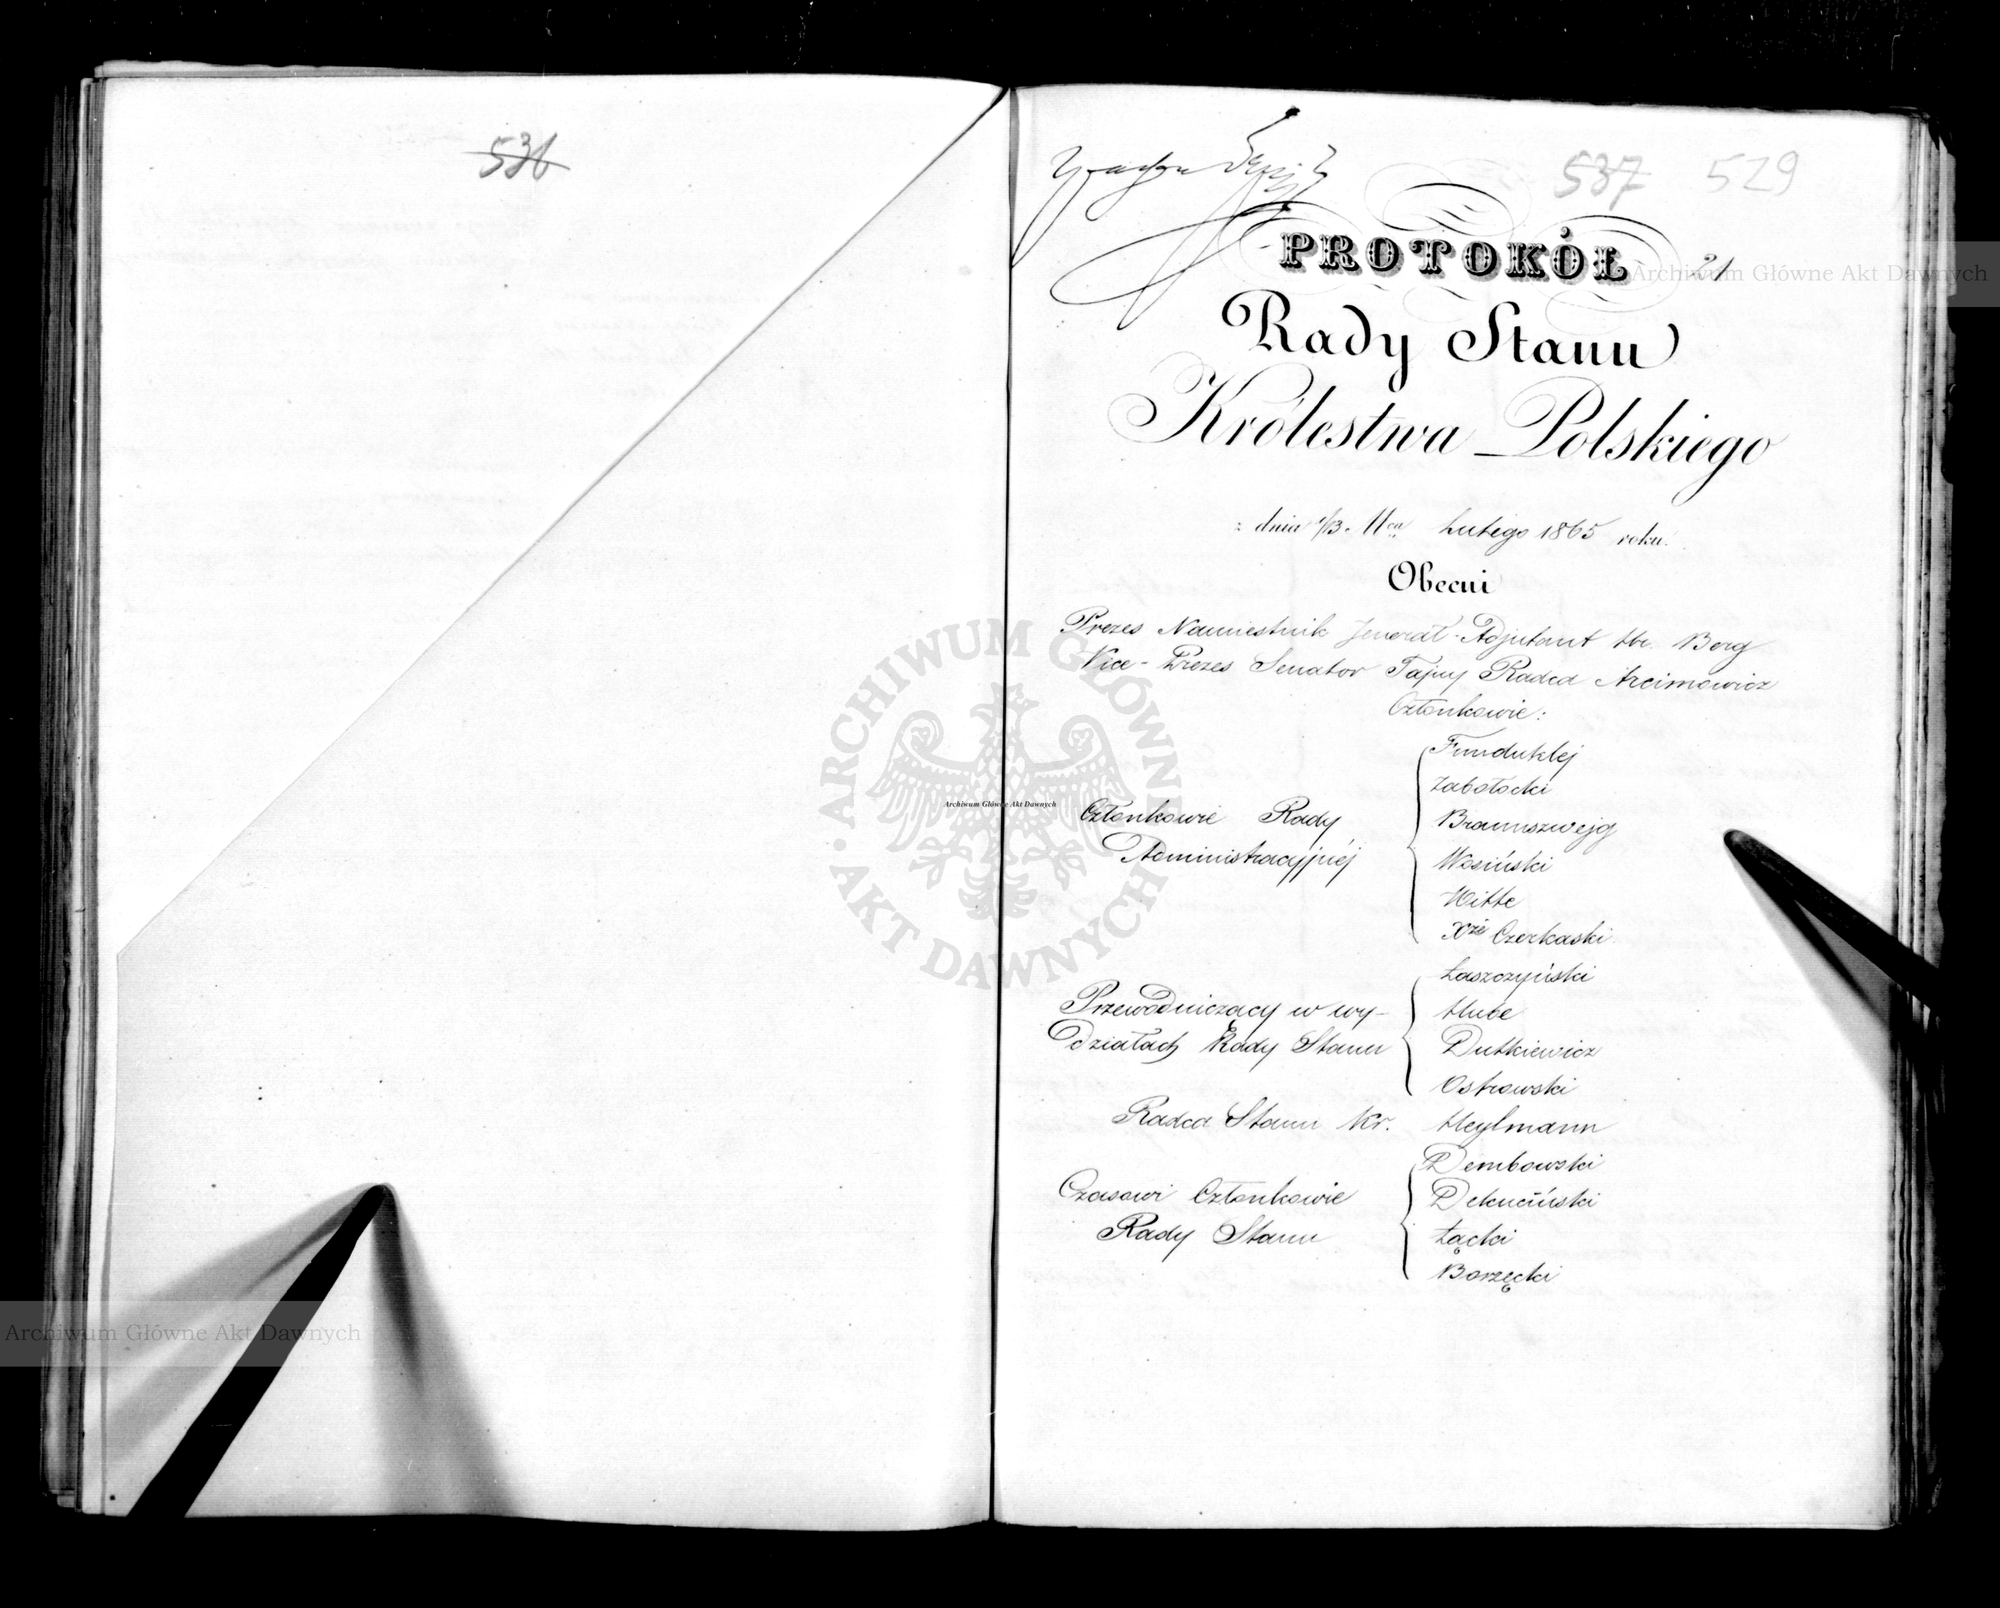 536
537 529
PROTOKÓŁ 21
Rady Stanu
Królestwa Polskiego
z dnia 1/13 Mca Lutego 1865 roku.
Obecni
Prezes Namiestnik Jenerał-Adjutant Hr. Berg
Vice-Prezes Senator Tajny Radca Arcimowicz
Członkowie:
Członkowie Rady
Administracyjnéj
Funduklej
Zabołocki
Braunszwejg
Wosiński
Witte
Xże Czerkaski
Przewodniczący w wy-
działach Rady Stanu
Łaszczyński
Hube
Dutkiewicz
Ostrowski
Radca Stanu Kr. Heylmann
Czasowi Członkowie
Rady Stanu
Dembowski
Dekuciński
Łącki
Borzęcki
Archiwum Główne Akt Dawnych
ARCHIWUM GŁÓWNE AKT DAWNYCH
Archiwum Główne Akt Dawnych
Archiwum Główne Akt Dawnych